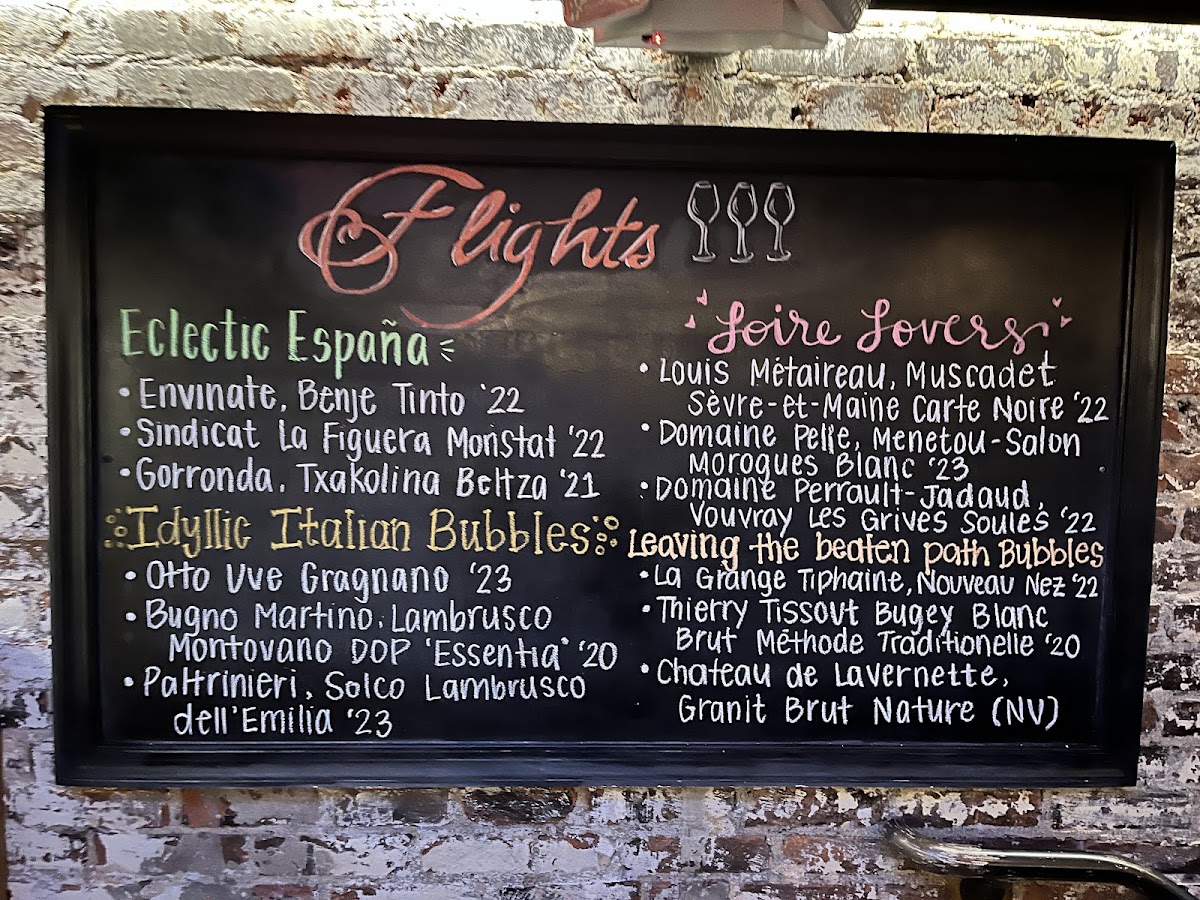 Flights
Eclectic España
• Envinate, Benje Tinto '22
• Sindicat La Figuera Monstat '22
• Gorronda, Txakolina Beltza '21
Idyllic Italian Bubbles
• Otto Uve Gragnano '23
• Bugno Martino, Lambrusco
Montovano DOP 'Essentia' '20
• Paltrinieri, Solco Lambrusco
dell'Emilia '23
Loire Lovers
• Louis Métaireau, Muscadet
Sèvre-et-Maine Carte Noire '22
• Domaine Pelle, Menetou-Salon
Morogues Blanc '23
• Domaine Perrault-Jadaud,
Vouvray Les Grives Soules '22
Leaving the beaten path Bubbles
• La Grange Tiphaine, Nouveau Nez '22
• Thierry Tissout Bugey Blanc
Brut Méthode Traditionelle '20
• Chateau de Lavernette,
Granit Brut Nature (NV)